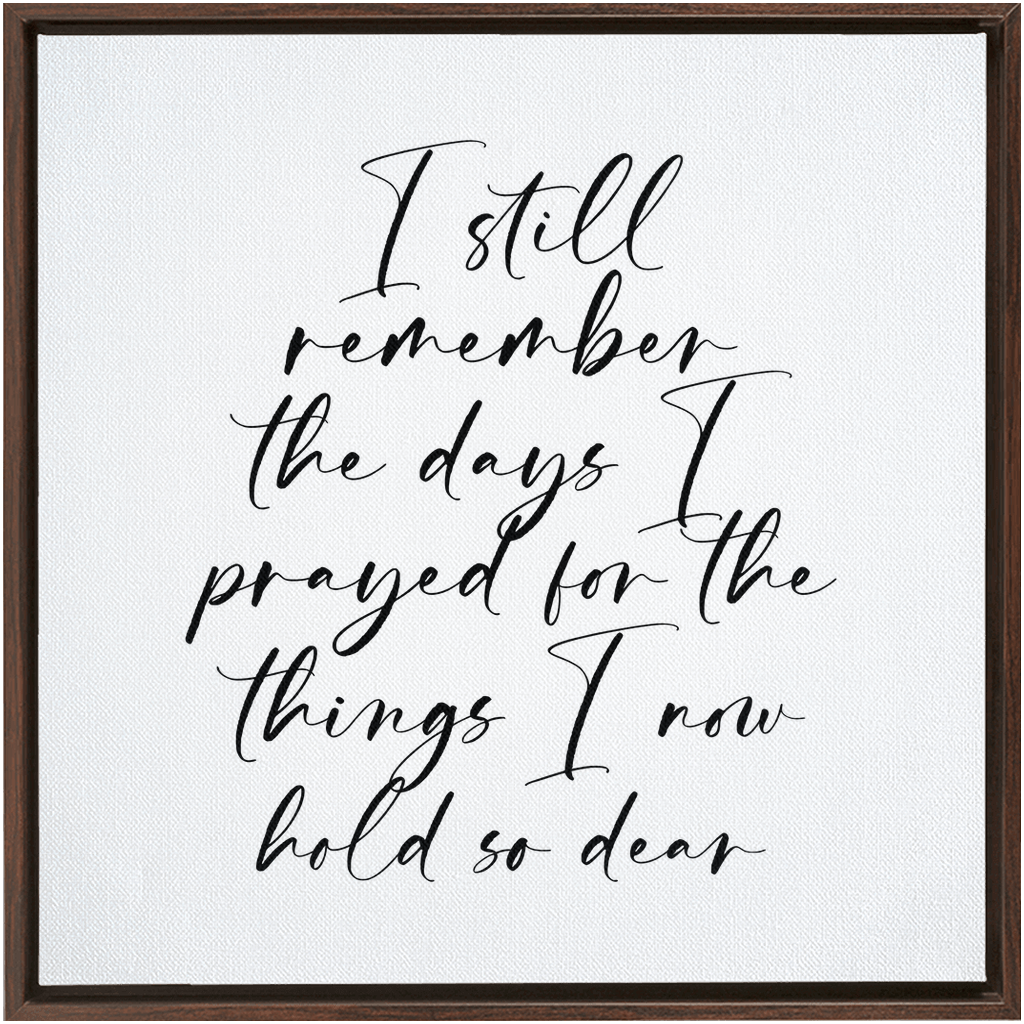 I still
remember
the days I
prayed for the
things I now
hold so dear